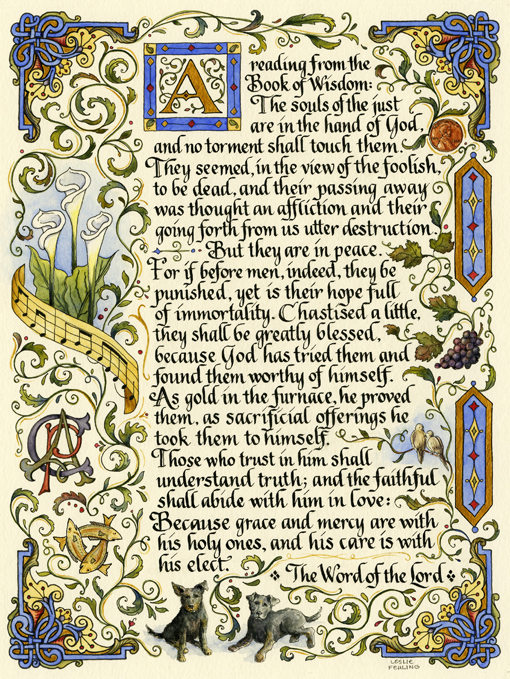 A
reading from the
Book of Wisdom:
The souls of the just
are in the hand of God,
and no torment shall touch them.
They seemed, in the view of the foolish,
to be dead, and their passing away
was thought an affliction and their
going forth from us utter destruction.
But they are in peace.
For if before men, indeed, they be
punished, yet is their hope full
of immortality. Chastised a little,
they shall be greatly blessed,
because God has tried them and
found them worthy of himself.
As gold in the furnace, he proved
them, as sacrificial offerings he
took them to himself.
Those who trust in him shall
understand truth; and the faithful
shall abide with him in love:
Because grace and mercy are with
his holy ones, and his care is with
his elect.
The Word of the Lord
LESLIE
FEHLING